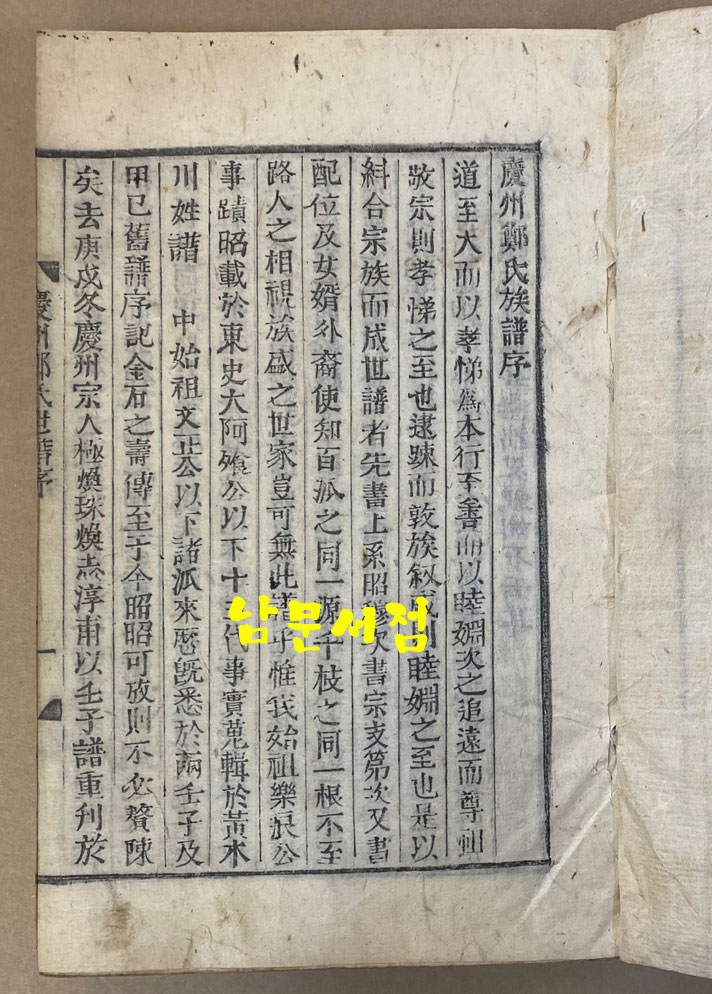 慶州鄭氏族譜序
道至大而以孝悌爲本行至善而以睦婣次之追遠而尊祖
敬宗則孝悌之至也逮踈而敦族叙戚則睦婣之至也是以
糾合宗族而成世譜者先書上系昭穆次書宗支第次又書
配位及女婿外裔使知百派之同一源千枝之同一根不至
路人之相視族盛之世家豈可無此譜乎惟我始祖樂浪公
事蹟昭載於東史大阿飱公以下十代事實蒐輯於黃水
川姓譜 中始祖文正公以下諸派來歷旣悉於兩壬子及
甲巳舊譜序記金石之壽傳至于今昭昭可攷則不必贅陳
矣去庚戌冬慶州宗人極煥珠煥志淳甫以壬子譜重刊於
慶州鄭氏世譜序
一
남문서점